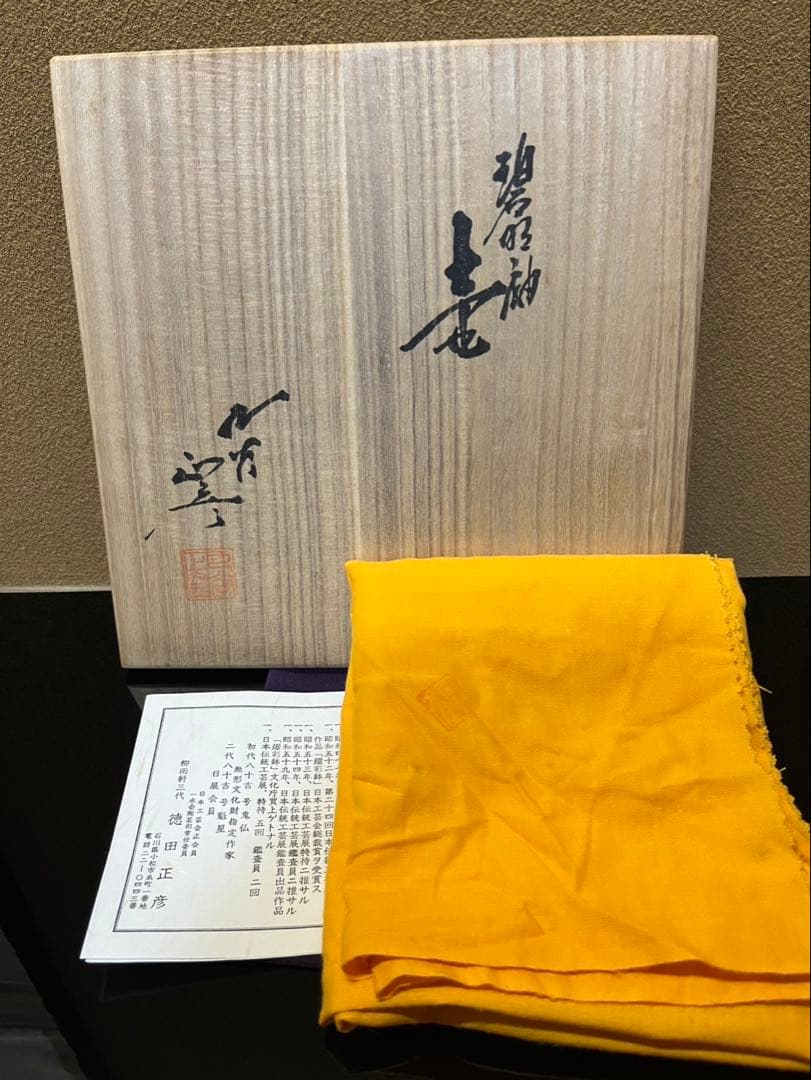 碧明釉
壷
一、昭和五十二年、第二十四回日本伝
作品「燿彩鉢」日本工芸会総裁賞ヲ受賞ス
一、昭和五十三年、日本伝統工芸展特待ニ推サル
一、昭和五十四年、日本伝統工芸展鑑査員ニ推サル
一、昭和五十九年、日本伝統工芸展鑑査員出品作品
「燿彩鉢」文化庁買上ゲトナル
一、日本伝統工芸展、特待 五回 鑑査員 二回
初代八十吉 号鬼仏
無形文化財指定作家
二代八十吉 号魁星
日展会員
日本工芸会正会員
一水会陶芸部常任委員
柳術軒三代 徳田正彦
石川県小松市糸町一番地
電話二二—〇四四三番